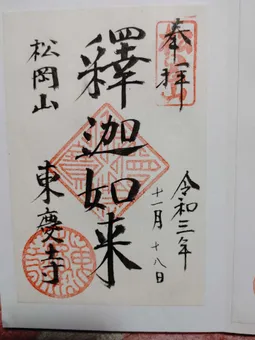 奉拝
令和三年
十一月十八日
釋迦如来
松岡山
東慶寺